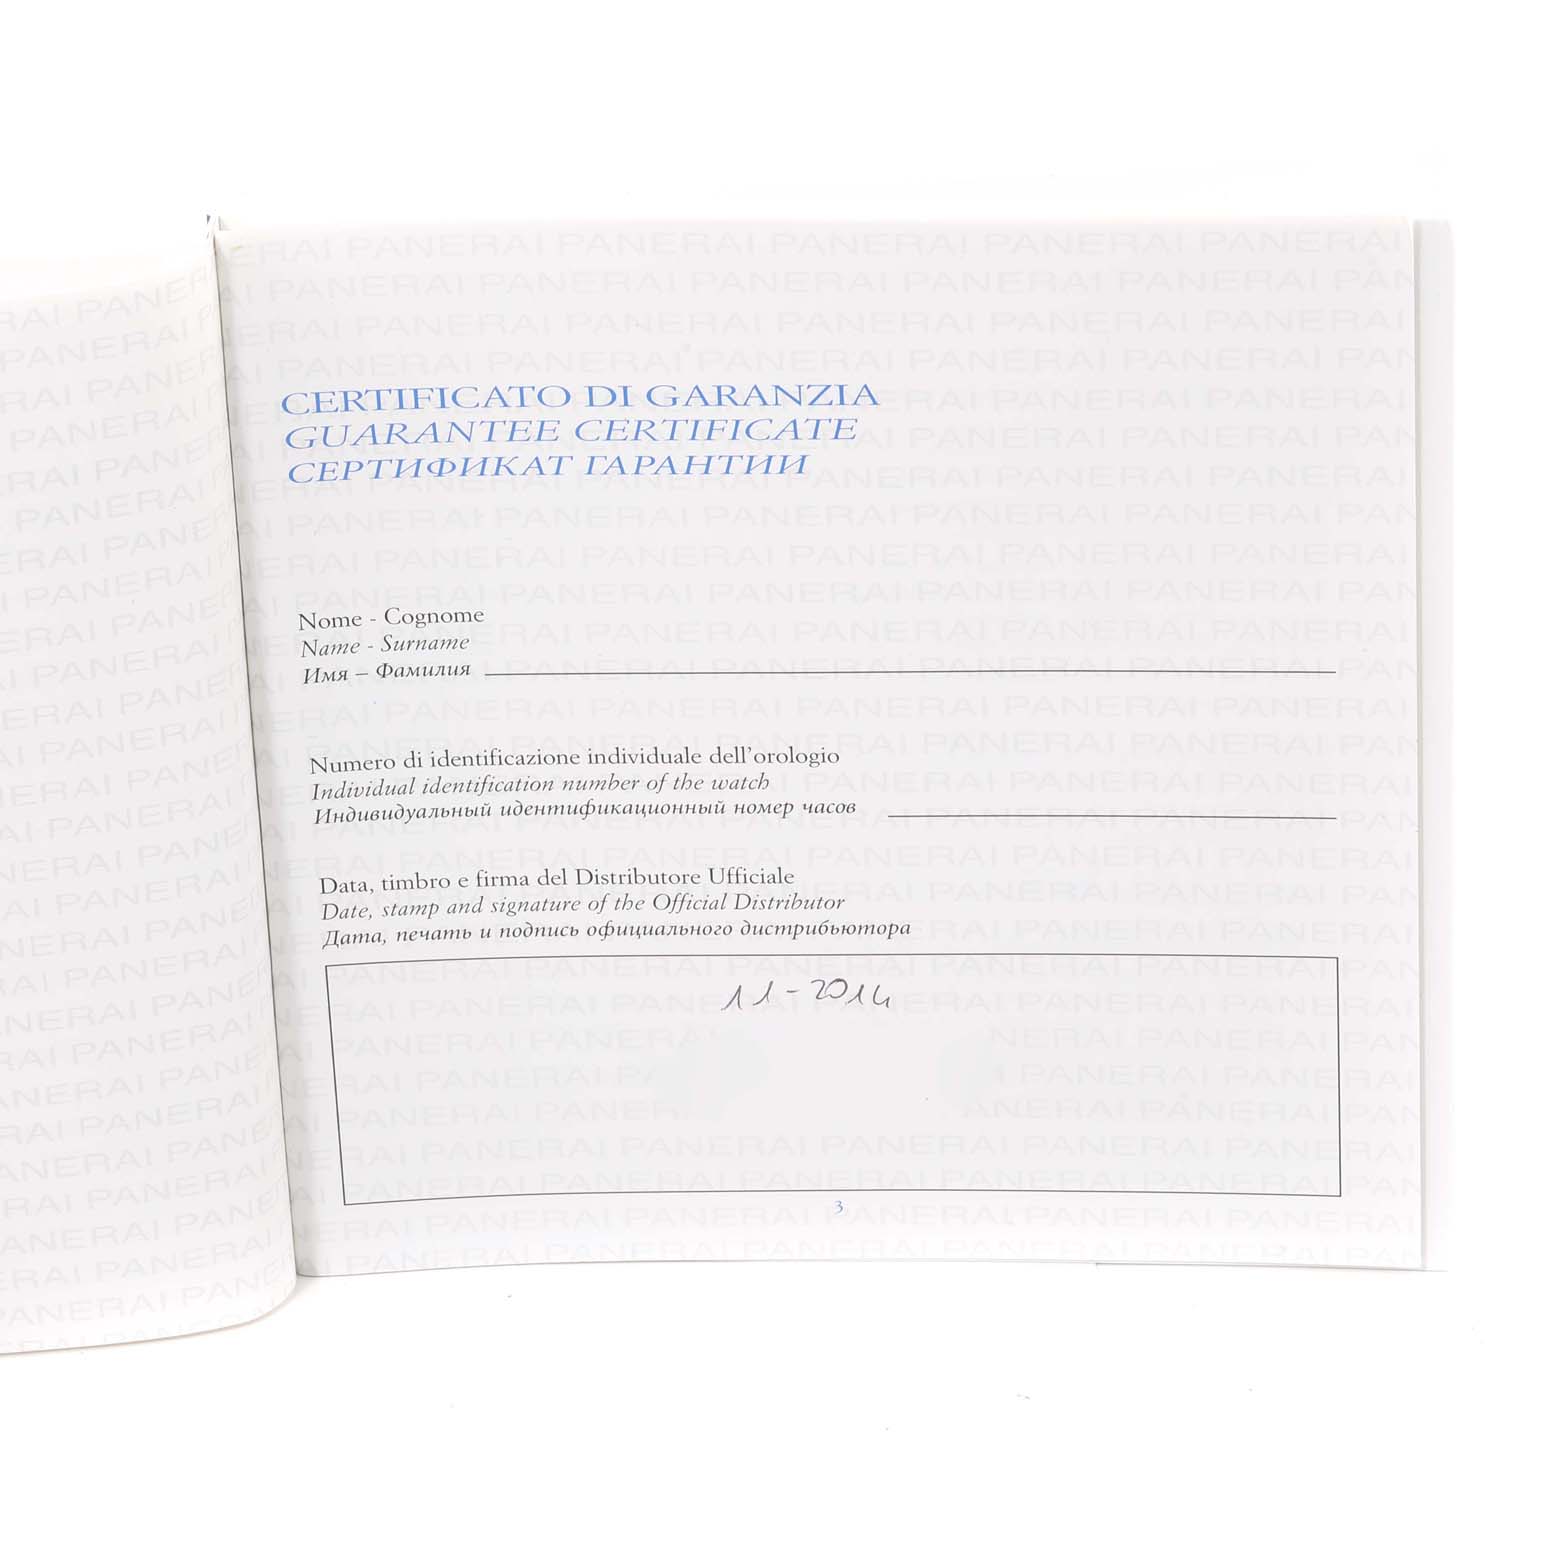 CERTIFICATO DI GARANZIA
GUARANTEE CERTIFICATE
СЕРТИФИКАТ ГАРАНТИИ
Nome - Cognome
Name - Surname
Имя – Фамилия
Numero di identificazione individuale dell'orologio
Individual identification number of the watch
Индивидуальный идентификационный номер часов
Data, timbro e firma del Distributore Ufficiale
Date, stamp and signature of the Official Distributor
Дата, печать и подпись официального дистрибьютора
11-2014
3